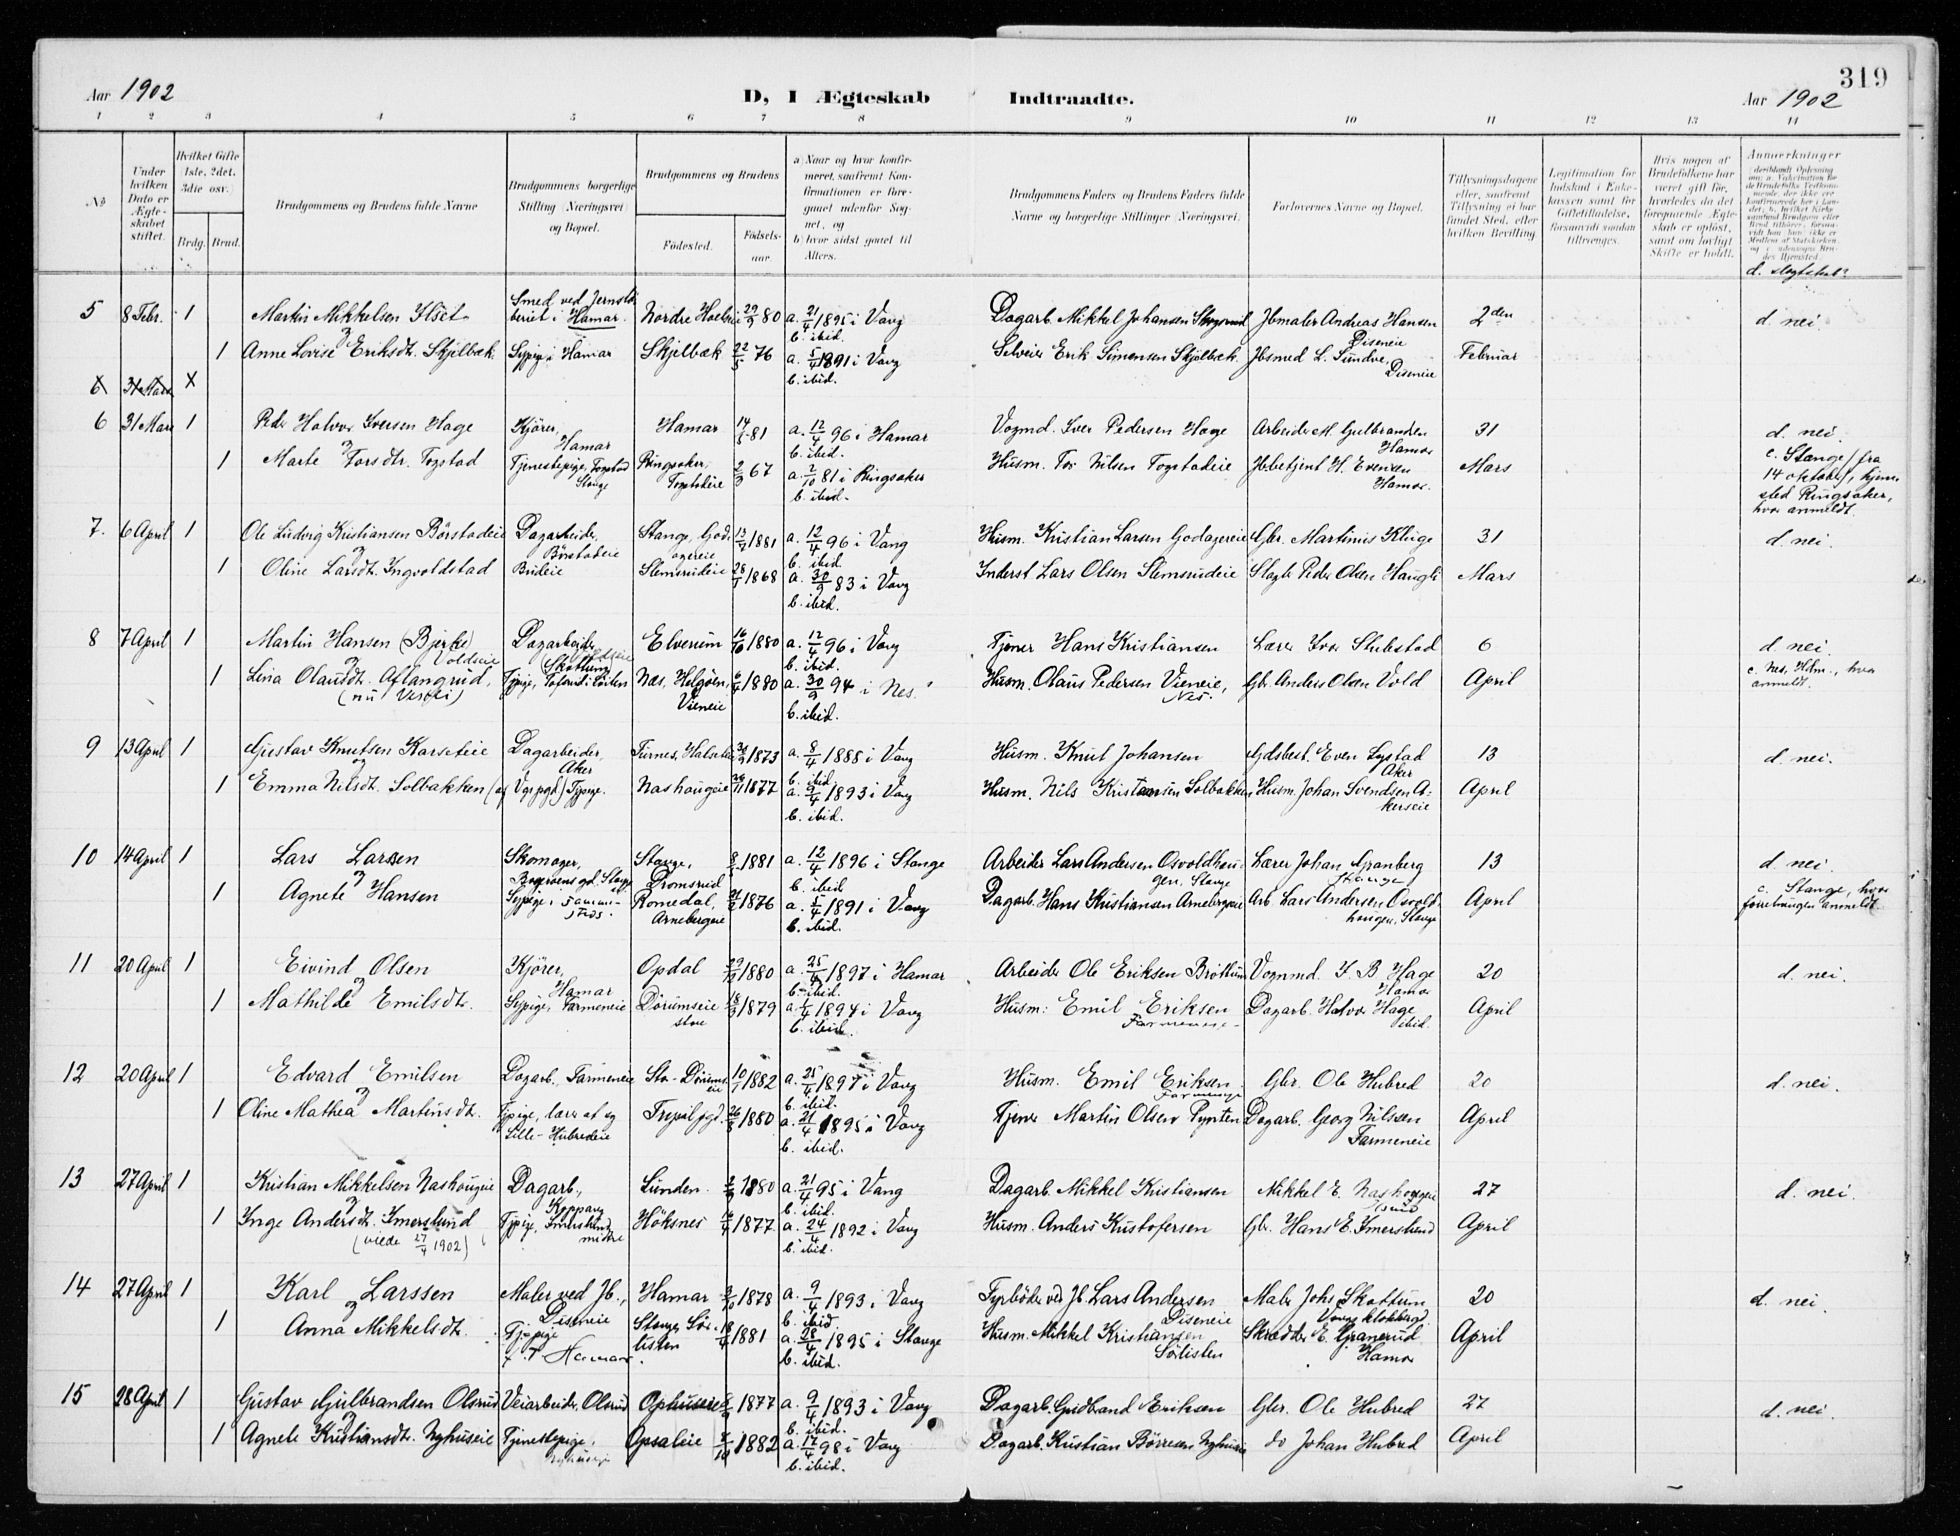 319
Aar 1902
D, I Ægteskab Indtraadte.
Aar 1902
1 2 3 4 5 6 7 8 9 10 11 12 13 14
No
Under hvilken Dato er Ægteskabet stiftet.
Hvilket Gifte 1ste, 2det, 3die osv.
Brdg. Brud.
Brudgommens og Brudens fulde Navne
Brudgommens borgerlige Stilling (Næringsvei) og Bopæl.
Brudgommens og Brudens
Fødested.
Fødselsaar.
a) Naar og hvor konfirmeret, saafremt Konfirmationen er foregaaet udenfor Sognet, og
b) hvor sidst gaaet til Alters.
Brudgommens Faders og Brudens Faders fulde Navne og borgerlige Stillinger (Næringsvei).
Forlovernes Navne og Bopæl.
Tillysningsdagene eller, saafremt Tillysning ei har fundet Sted, efter hvilken Bevilling.
Legitimation for Indskud i Enkekassen samt for Giftetilladelse, forsaavidt saadan tiltrænges.
Hvis nogen af Brudefolkene har været gift før, hvorledes da det foregaaende Ægteskab er opløst, samt om lovligt Skifte er holdt.
Anmærkninger
5 8 Febr. 1 Martin Mikkelsen Ilset Smed ved Jernstøberiet i Hamar. Nordre Hoelseie 29/9 80 a. 21/4 1895 i Vang b. ibid. Dagarb. Mikkel Johansen Jbmaler Andreas Hansen Diseneie 2den d. nei.
1 Anne Lovise Eriksdt. Skjelbæk. Sypige i Hamar Skjelbæk 22/5 76 a. 5/4 1891 i Vang b. ibid. Selveier Erik Simensen Skjølbæk Jbsmed L. Sundve, Diseneie Februar
6 31 Mars X
6 31 Mars 1 Peder Halvor Iversen Hage Kjører, Hamar Hamar 14/5 81 a. 12/4 96 i Hamar b. ibid. Vogmd. Iver Pedersen Hage Arbeider M. Gulbrandsen Hamar 31 d. nei.
1 Marte Torsdtr. Togstad Tjenestepige, Togstad Stange Ringsaker, Togstadeie 2/3 67 a. 2/10 81 i Ringsaker b. ibid. Husm. Tor Nilsen Togstadeie Jbbetjent H. Evensen Hamar. Mars c. Stange (fra 14 oktober), hjemsted Ringsaker, hvor anmeldt.
7. 6 April 1 Ole Ludvig Kristiansen Børstadeie Dagarbeider, Børstadeie Stange, Godagereie 13/7 1881 a. 12/4 96 i Vang b. ibid Husm. Kristian Larsen Godagereie Gbr. Martinus Kluge 31 d. nei.
1 Oline Larsdt. Ingvoldstad Brueie Slemsrudeie 28/1 1868 a. 30/9 83 i Vang b. ibid. Inderst Lars Olsen Slemsrudeie Slagter Peder Olsen Haugli Mars
8 7 April 1 Martin Hansen (Bjerke) Voldseie Dagarbeider, Elverum 16/10 1880 a. 12/4 96 i Vang b. ibid. Tjener Hans Kristiansen Lærer Ivar Stubstad 6 d. nei.
1 Lina Olausdt. Aflangrud, Næs, Helgøen, Vieneie 6/4 1880 a. 30/9 94 i Nes. b. ibid. Husm. Olaus Pedersen Vieneie, Nes. Gbr. Anders Olsen Vold April c. Nes, Hdm., hvor anmeldt.
9 13 April 1 Gustav Knutsen Karseteie Dagarbeider, Aker Furnes, 1873 a. 8/4 1888 i Vang b. ibid Husm. Knut Johansen Gdsbest. Even Systad Aker 13 d. nei.
1 Emma Nilsdt. Solbakken Tjpige. Nashougeie 1877 a. 9/4 1893 i Vang b. ibid. Husm. Nils Kristiansen Solbakken Husm. Johan Svendsen Akerseie April
10 14 April 1 Lars Larsen Skomager, Stange, Dromsrud 1881 a. 12/4 1896 i Stange b. ibid Arbeider Lars Andersen Osvoldhaugen, Stange Lærer Johan Granberg Stange 13 d. nei.
1 Agnete Hansen Sypige, sammesteds. Romedal, Arnebergeie 1876 a. 5/4 1891 i Vang b. ibid. Dagarb. Hans Kristiansen Arnebergeie Arb. Lars Andersen Osvoldhaugen, Stange April c. Stange, hvor anmeldt.
11 20 April 1 Eivind Olsen Kjører, Hamar Opdal 1880 a. 25/4 1897 i Hamar b. ibid. Arbeider Ole Eriksen Brøttum Vognmd. I. B. Hage Hamar 20 d. nei.
1 Mathilde Emilsdt. Sypige, Farmeneie Dørumseie store 18/3 1879 a. 1/4 1894 i Vang b. ibid. Husm. Emil Eriksen Farmeneie Dagarb. Halvor Hage ibid. April
12 20 April 1 Edvard Emilsen Dagarb., Farmeneie Sto-Dørumseie 10/1 1882 a. 25/4 1897 i Vang b. ibid. Husm. Emil Eriksen Farmeneie Gbr. Ole Hubred 20 d. nei.
1 Oline Mathea Martinsdt. Lille-Hubredeie Trysil pgd. 26/8 1880 a. 21/4 1895 i Vang b. ibid. Tjener Martin Olsen Pynten Dagarb. Georg Nilssen Farmeneie April
13 27 April 1 Kristian Mikkelsen Nashougeie Dagarb., Lunden 1880 a. 21/4 95 i Vang b. ibid. Dagarb. Mikkel Kristiansen Mikkel E. Nashougeie 27 d. nei.
1 Inge Andersdt. Imerslund (viede 27/4 1902) Tjpige, Imerslund midtre Høksnes 1877 a. 24/4 1892 i Vang b. ibid. Husm. Anders Kristofersen Gbr. Hans E. Imerslund April
14 27 April 1 Karl Larssen Maler ved Jb., Diseneie Hamar 1878 a. 9/4 1893 i Vang b. ibid. Fyrbøder ved Jb. Lars Andersen Diseneie Maler Johs Skattum 20 d. nei.
1 Anna Mikkelsdt. Tjpige Hamar Stange, Sørlisten 18/4 1881 a. 28/4 1895 i Stange b. ibid. Husm. Mikkel Kristiansen Sørlisten Skrædder E. Granerud Hamar April
15 28 April 1 Gustav Gulbrandsen Olsrud Veiarbeider, Olsrud Ophuseie 1877 a. 9/4 1893 i Vang b. ibid. Dagarb. Gudbrand Eriksen Gbr. Ole Hubred 27 d. nei.
1 Agnete Kristiansdt. Nyhuseie Tjenestepige, Nyhuseie Opsaleie 1882 a. 17/4 98 i Vang b. ibid. Dagarb. Kristian Børresen Nyhuseie do Johan Hubred April